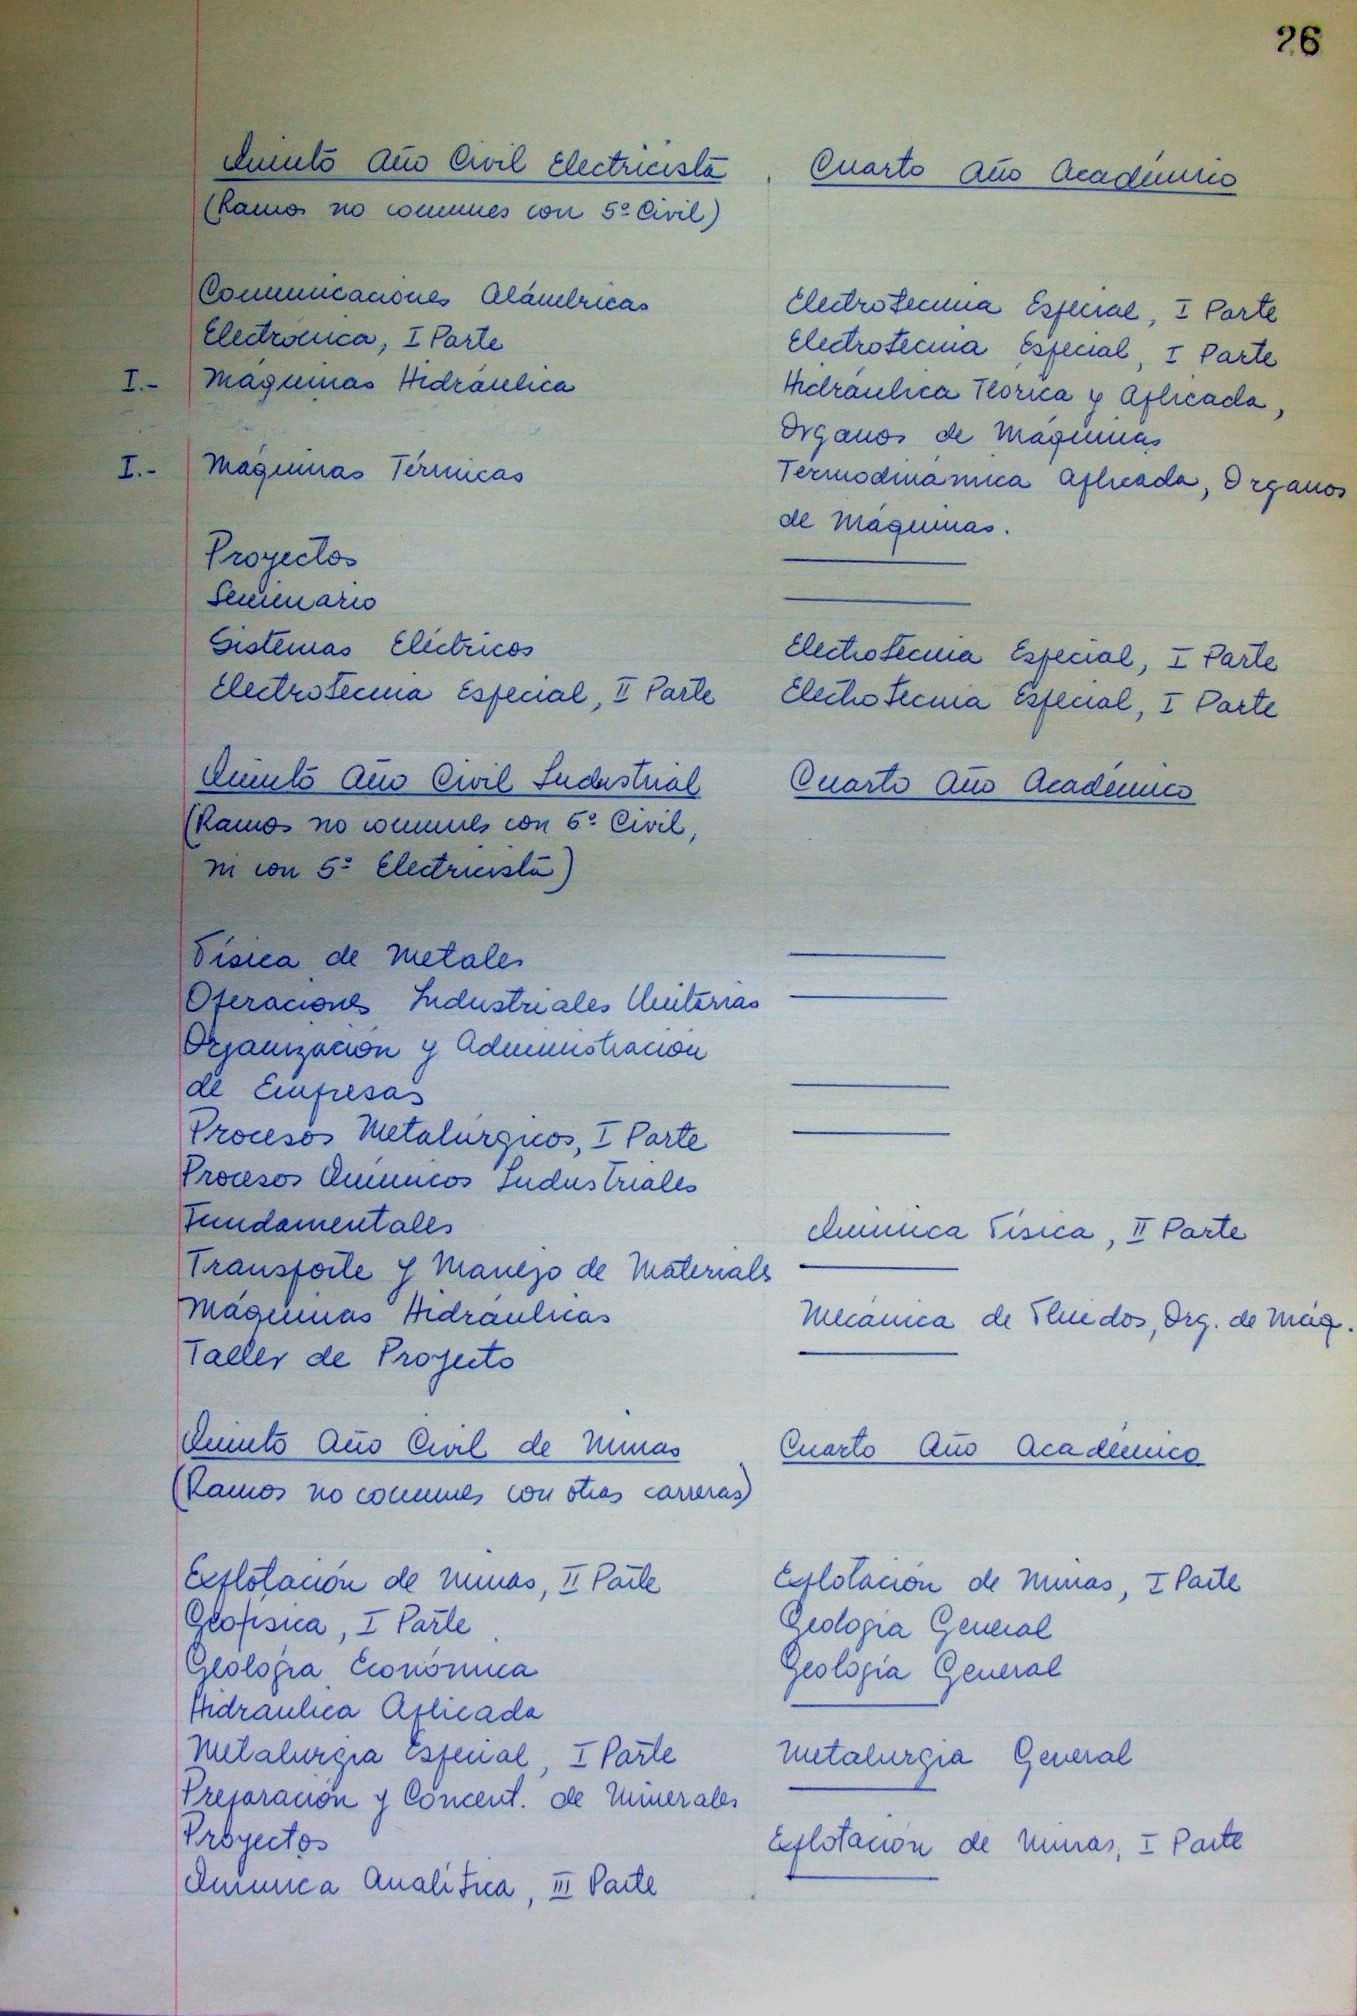 26
Quinto Año Civil Electricista, Cuarto Año Académico
(Ramos no comunes con 5º Civil)
Comunicaciones Alámbricas Electrotecnia Especial, I Parte
Electrónica, I Parte Electrotecnia Especial, I Parte
I.- Máquinas Hidráulica Hidráulica Teórica y Aplicada,
Organos de Máquinas
I.- Máquinas Térmicas Termodinámica Aplicada, Organos
de Máquinas.
Proyectos
Seminario
Sistemas Eléctricos Electrotecnia Especial, I Parte
Electrotecnia Especial, II Parte Electrotecnia Especial, I Parte
Quinto Año Civil Industrial Cuarto Año Académico
(Ramos no comunes con 5º Civil,
ni con 5º Electricista)
Física de Metales
Operaciones Industriales Unitarias
Organización y Administración
de Empresas
Procesos Metalúrgicos, I Parte
Procesos Químicos Industriales
Fundamentales Química Física, II Parte
Transporte y Manejo de Materials
Máquinas Hidráulicas Mecánica de Fluidos, Org. de Máq.
Taller de Proyecto
Quinto Año Civil de Minas Cuarto Año Académico
(Ramos no comunes con otras carreras)
Explotación de Minas, II Parte Explotación de Minas, I Parte
Geofísica, I Parte Geología General
Geología Económica Geología General
Hidraulica Aplicada
Metalurgia Especial, I Parte Metalurgia General
Preparación y Concent. de Minerales
Proyectos Explotación de Minas, I Parte
Química Analítica, III Parte